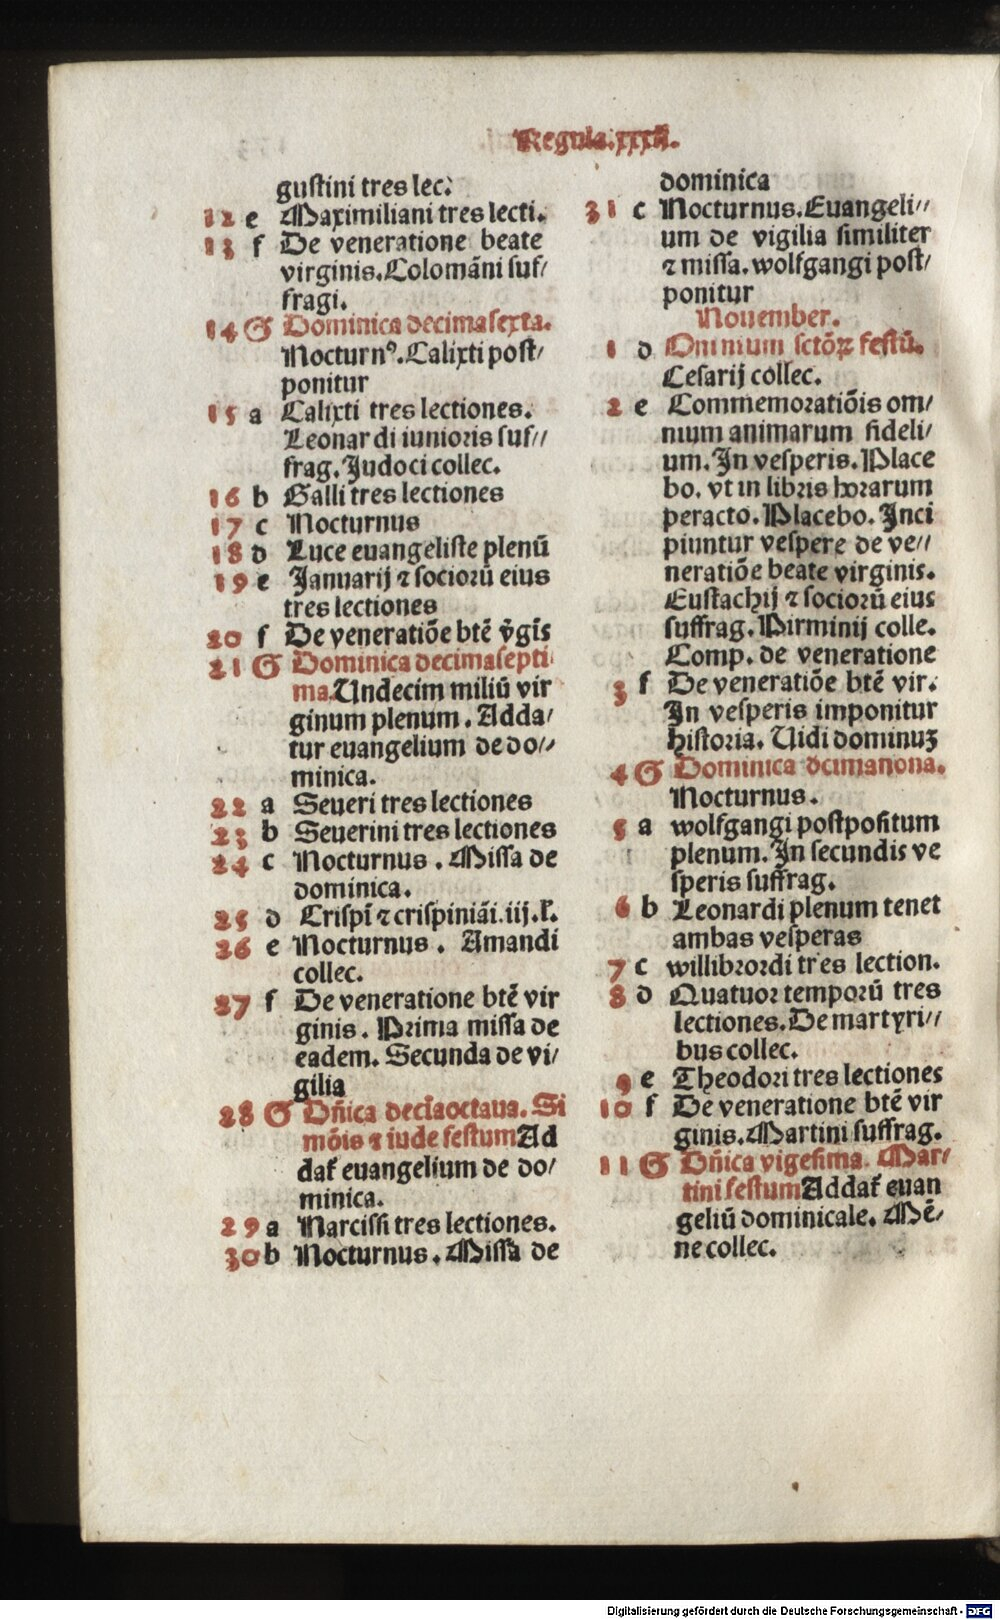 Regula.xxxij.
gustini tres lec.
12 e Maximiliani tres lecti.
13 f De veneratione beate
virginis. Colomãni suf/
fragi.
14 G Dominica decimasexta.
Nocturnꝰ. Calixti post/
ponitur
15 a Calixti tres lectiones.
Leonardi iunioris suf//
frag. Judoci collec.
16 b Galli tres lectiones
17 c Nocturnus
18 d Luce euangeliste plenũ
19 e Januarij ⁊ sociorũ eius
tres lectiones
20 f De veneratiõe btẽ v̾gĩs
21 G Dominica decimasepti
ma. Undecim miliũ vir
ginum plenum. Adda/
tur euangelium de do//
minica.
22 a Seueri tres lectiones
23 b Seuerini tres lectiones
24 c Nocturnus. Missa de
dominica.
25 d Crispĩ ⁊ crispiniãi. iij. l̃.
26 e Nocturnus. Amandi
collec.
27 f De veneratione btẽ vir
ginis. Prima missa de
eadem. Secunda de vi/
gilia
28 G Dñica decĩaoctaua. Si
mõis ⁊ iude festum Ad
dat̃ euangelium de do/
minica.
29 a Narcissi tres lectiones.
30 b Nocturnus. Missa de
dominica
31 c Nocturnus. Euangeli//
um de vigilia similiter
⁊ missa. wolfgangi post/
ponitur
Nouember.
1 d Omnium sctõꝝ festũ.
Cesarij collec.
2 e Commemoratiõis om/
nium animarum fideli/
um. In vesperis. Place
bo. vt in libris horarum
peracto. Placebo. Inci
piuntur vespere de ve//
neratiõe beate virginis.
Eustachij ⁊ sociorũ eius
suffrag. Pirminij colle.
Comp. de veneratione
3 f De veneratiõe btẽ vir.
In vesperis imponitur
historia. Uidi dominuꝫ
4 G Dominica dcimanona.
Nocturnus.
5 a wolfgangi postpositum
plenum. In secundis ve
speris suffrag.
6 b Leonardi plenum tenet
ambas vesperas
7 c willibrordi tres lection.
8 d Quatuor temporũ tres
lectiones. De martyri//
bus collec.
9 e Theodori tres lectiones
10 f De veneratione btẽ vir
ginis. Martini suffrag.
11 G Dñica vigesima. Mar/
tini festum Addat̃ euan
geliũ dominicale. Mẽ/
ne collec.
Digitalisierung gefördert durch die Deutsche Forschungsgemeinschaft - DFG